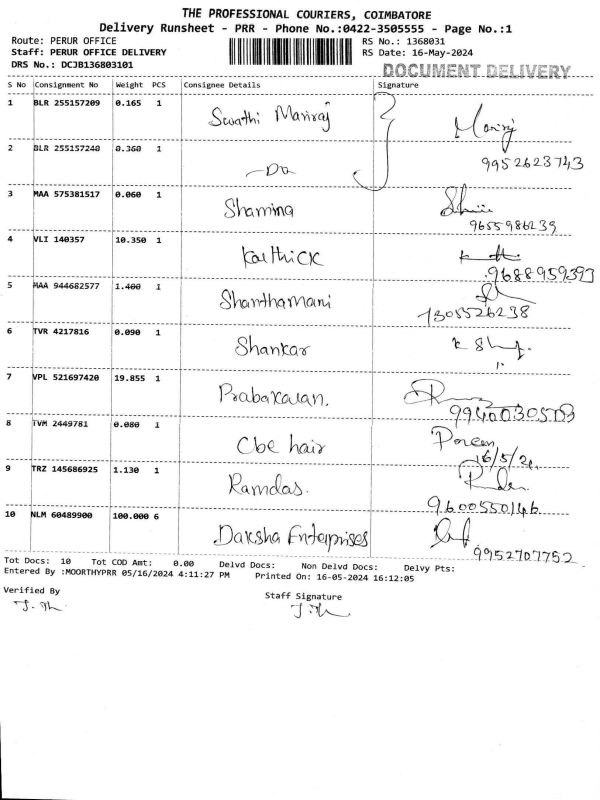 THE PROFESSIONAL COURIERS, COIMBATORE
Delivery Runsheet - PRR - Phone No.:0422-3505555 - Page No.:1
Route: PERUR OFFICE RS No.: 1368031
Staff: PERUR OFFICE DELIVERY RS Date: 16-May-2024
DRS No.: DCJB136803101 DOCUMENT DELIVERY
S No Consignment No Weight PCS Consignee Details Signature
1 BLR 255157209 0.165 1 Swathi Maniraj
2 BLR 255157240 0.360 1 -Do 9952623743
3 MAA 575381517 0.060 1 Shamina
9655986239
4 VLI 140357 10.350 1 Karthick
9688959393
5 MAA 944682577 1.400 1 Shanthamani
7305526238
6 TVR 4217816 0.090 1 Shankar
7 VPL 521697420 19.855 1 Prabakaran.
8 TVM 2449781 0.080 1 Cbe hair
9 TRZ 145686925 1.130 1 Ramdas.
9600550146
10 NLM 60489900 100.000 6 Daksha Enterprises
9952707752
Tot Docs: 10 Tot COD Amt: 0.00 Delvd Docs: Non Delvd Docs: Delvy Pts:
Entered By :MOORTHYPRR 05/16/2024 4:11:27 PM Printed On: 16-05-2024 16:12:05
Verified By Staff Signature